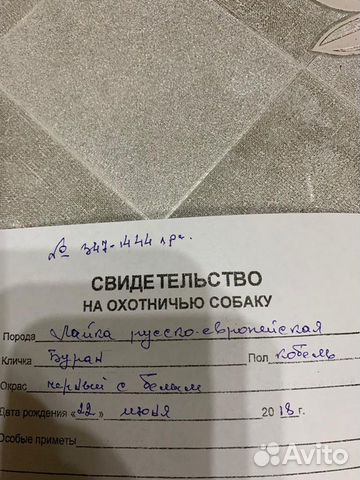 № 347-1444 
СВИДЕТЕЛЬСТВО
НА ОХОТНИЧЬЮ СОБАКУ
Порода Лайка русско-европейская
Кличка Буран Пол кобель
Окрас черный с белым
Дата рождения «22» июня 2018 г.
Особые приметы
Avito